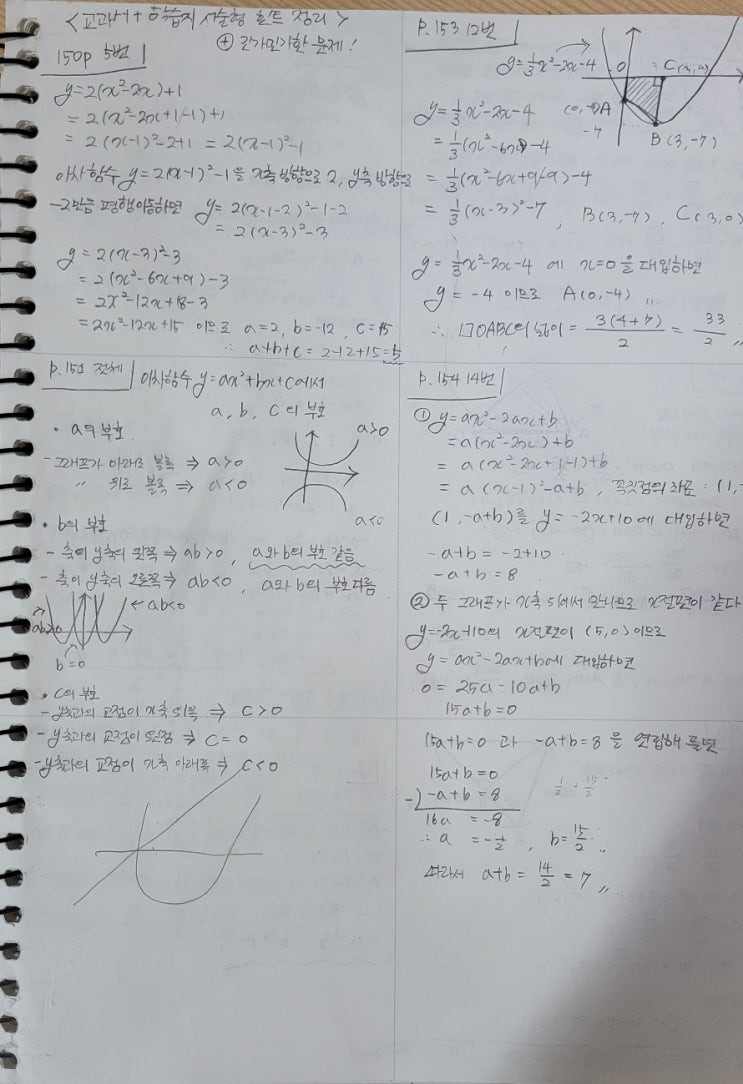 <교과서+학습지 서술형 힌트 정리>
⊕ 문제!
150p 5번
y=2(x²-2x)+1
=2(x²-2x+1-1)+1
=2(x-1)²-2+1=2(x-1)²-1
이차함수 y=2(x-1)²-1을 x축 방향으로 2, y축 방향으로
-2만큼 평행이동하면 y=2(x-1-2)²-1-2
=2(x-3)²-3
y=2(x-3)²-3
=2(x²-6x+9)-3
=2x²-12x+18-3
=2x²-12x+15 이므로 a=2, b=-12, c=15
∴ a+b+c=2-12+15=5
P.151 전체
이차함수 y=ax²+bx+c에서
a, b, c의 부호
• a의 부호
a>0
- 그래프가 아래로 볼록 ⇒ a>0
〃 위로 볼록 ⇒ a<0
a<0
• b의 부호
- 축이 y축의 왼쪽 ⇒ ab>0, a와 b의 부호 같음
- 축이 y축의 오른쪽 ⇒ ab<0, a와 b의 부호 다름
ab>0
←ab<0
b=0
• c의 부호
- y축과의 교점이 x축 위쪽 ⇒ c>0
- y축과의 교점이 원점 ⇒ c=0
- y축과의 교점이 x축 아래쪽 ⇒ c<0
P.153 12번
y=⅓x²-2x-4
O
C(3,0)
A
-7
B(3,-7)
y=⅓x²-2x-4
=⅓(x²-6x)-4
=⅓(x²-6x+9-9)-4
=⅓(x-3)²-7, B(3,-7), C(3,0)
y=⅓x²-2x-4 에 x=0을 대입하면
y=-4 이므로 A(0,-4)〃
∴ □OABC의 넓이 = 3(4+7)/2 = 33/2〃
P.154 14번
① y=ax²-2ax+b
=a(x²-2x)+b
=a(x²-2x+1-1)+b
=a(x-1)²-a+b, 꼭짓점의 좌표 : (1,-
(1,-a+b)를 y=-2x+10에 대입하면
-a+b=-2+10
-a+b=8
② 두 그래프가 x축 위에서 만나므로 x절편이 같다
y=-2x+10의 x절편이 (5,0)이므로
y=ax²-2ax+b에 대입하면
0=25a-10a+b
15a+b=0
15a+b=0 과 -a+b=8 을 연립해 풀면
15a+b=0
½+15/2
-) -a+b=8
16a =-8
∴ a =-½, b=15/2〃
따라서 a+b=14/2=7〃